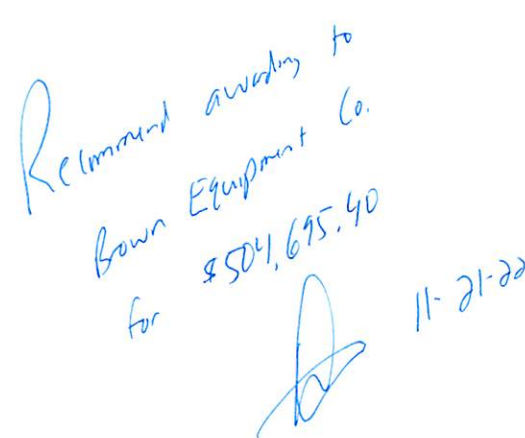 Recommend awarding to
Brown Equipment Co.
for $504,695.40
11-21-22